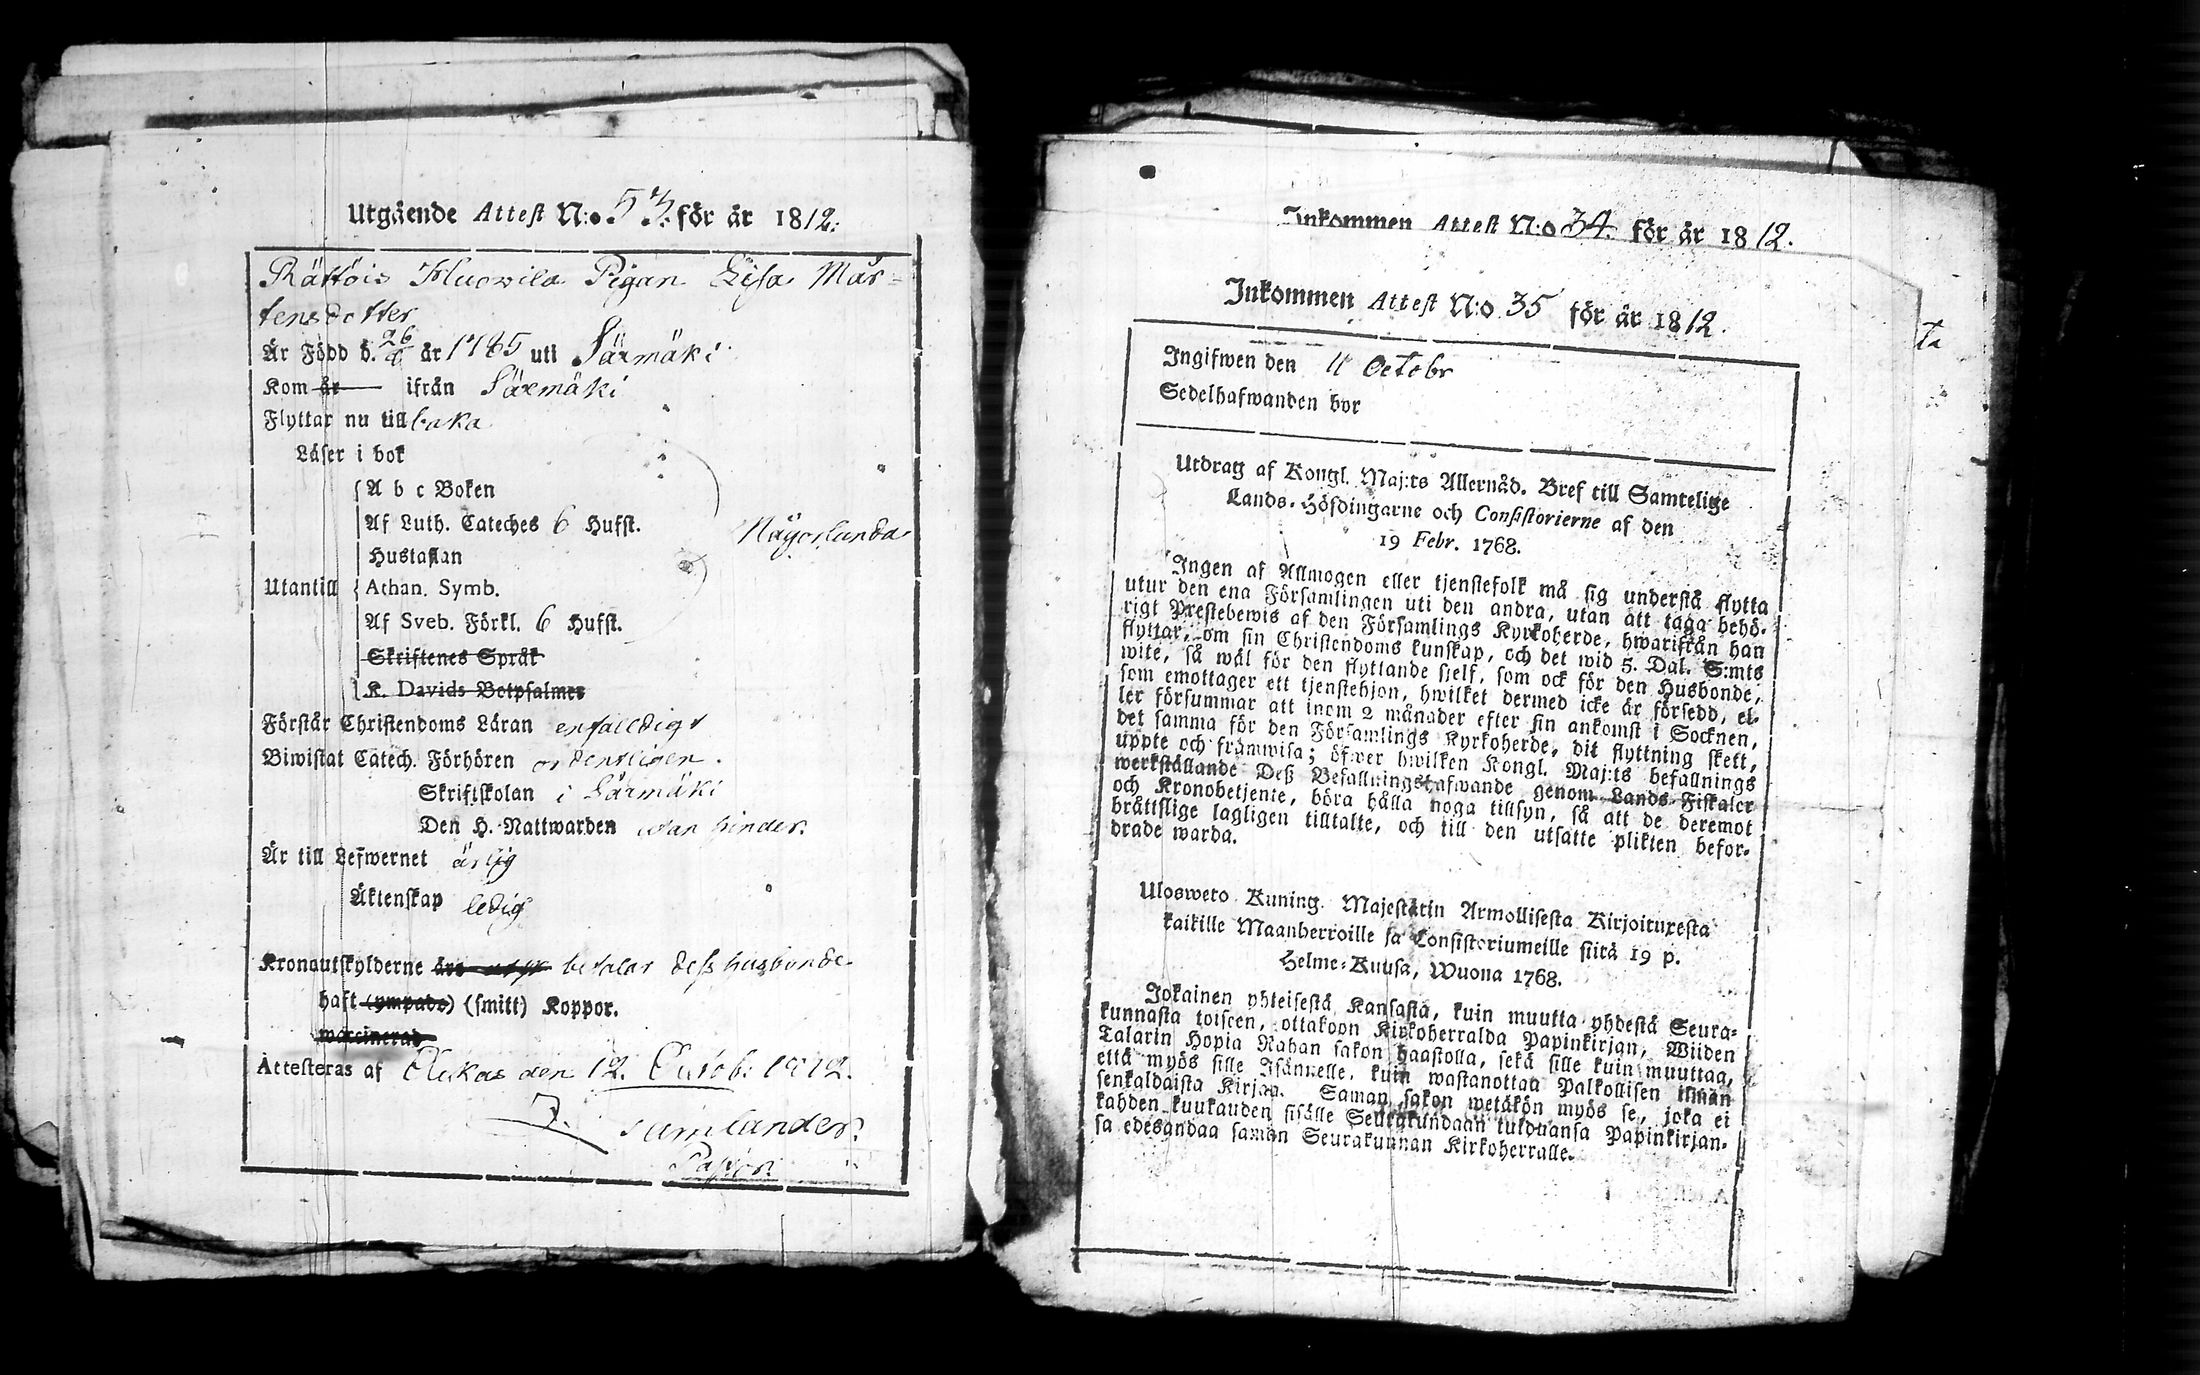 Utgående Attest N:o 53. för år 1812.
Rättöis Huowila Pigan Lisa Mår-
tensdotter
Är Född d. 26 år 1785 uti Särmäki
Kom år ifrån Särmäki
Flyttar nu tillbaka
Läser i bok
A b c Boken
Af Luth. Cateches 6 Hufst.
Någorlunda
Hustaflan
Utantill Athan. Symb.
Af Sveb. Förkl. 6 Hufst.
Skriftenes Språk
K. Davids Botpsalmer
Förstår Christendoms Läran enfalldigt
Biwistat Catech. Förhören ordentligen.
Skriftskolan i Särmäki
Den H. Nattwarden utan hinder.
Är till Lefwernet ärlig
Äktenskap ledig
Kronoutskylderne betalar dess husbonde
haft (ympade) (smitt) Koppor.
waccinerad
Attesteras af den 12. Octob: 1812.
Pastor.
Inkommen Attest N:o 34. för år 1812.
Inkommen Attest N:o 35 för år 1812.
Ta
Ingifwen den 11 Octobr
Sedelhafwanden bor
Utdrag af Kongl. Maj:ts Allernåd. Bref till Samtelige
Lands-Höfdingarne och Consistorierne af den
19 Febr. 1768.
Ingen af Allmogen eller tjenstefolk må sig understå flytta
utur den ena Församlingen uti den andra, utan att taga behö-
rigt Prestebewis af den Församlings Kyrkoherde, hwarifrån han
flyttar, om sin Christendoms kunskap, och det wid 5. Dal. S:mts
wite, så wäl för den flyttande sjelf, som ock för den Husbonde,
som emottager ett tjenstehjon, hwilket dermed icke är försedd, el-
ler försummar att inom 2 månader efter sin ankomst i Socknen,
det samma för den Församlings Kyrkoherde, dit flyttning skett,
uppte och framwisa; öfwer hwilken Kongl. Maj:ts befallnings
werkställande Deß Befallningshafwande genom Lands-Fiskaler
och Kronobetjente, böra hålla noga tillsyn, så att de deremot
bråttslige lagligen tilltalte, och till den utsatte plikten befor-
drade warda.
Ulosweto Kuning. Majestätin Armollisesta Kirjoituxesta
kaikille Maanherroille ja Consistoriumeille siitä 19 p.
Helme-Kuusa, Wuona 1768.
Jokainen yhteisestä Kansasta, kuin muutta yhdestä Seura-
kunnasta toiseen, ottakoon Kirkoherralda Papinkirjan, Wiiden
Talarin Hopia Rahan sakon haastolla, sekä sille kuin muuttaa,
että myös sille Isännelle, kuin wastanottaa Palkollisen ilman
senkaldaista Kirjan. Saman sakon wetäkön myös se, joka ei
kahden kuukauden sisälle Seurakundaan tulduansa Papinkirjan-
sa edesandaa saman Seurakunnan Kirkoherralle.